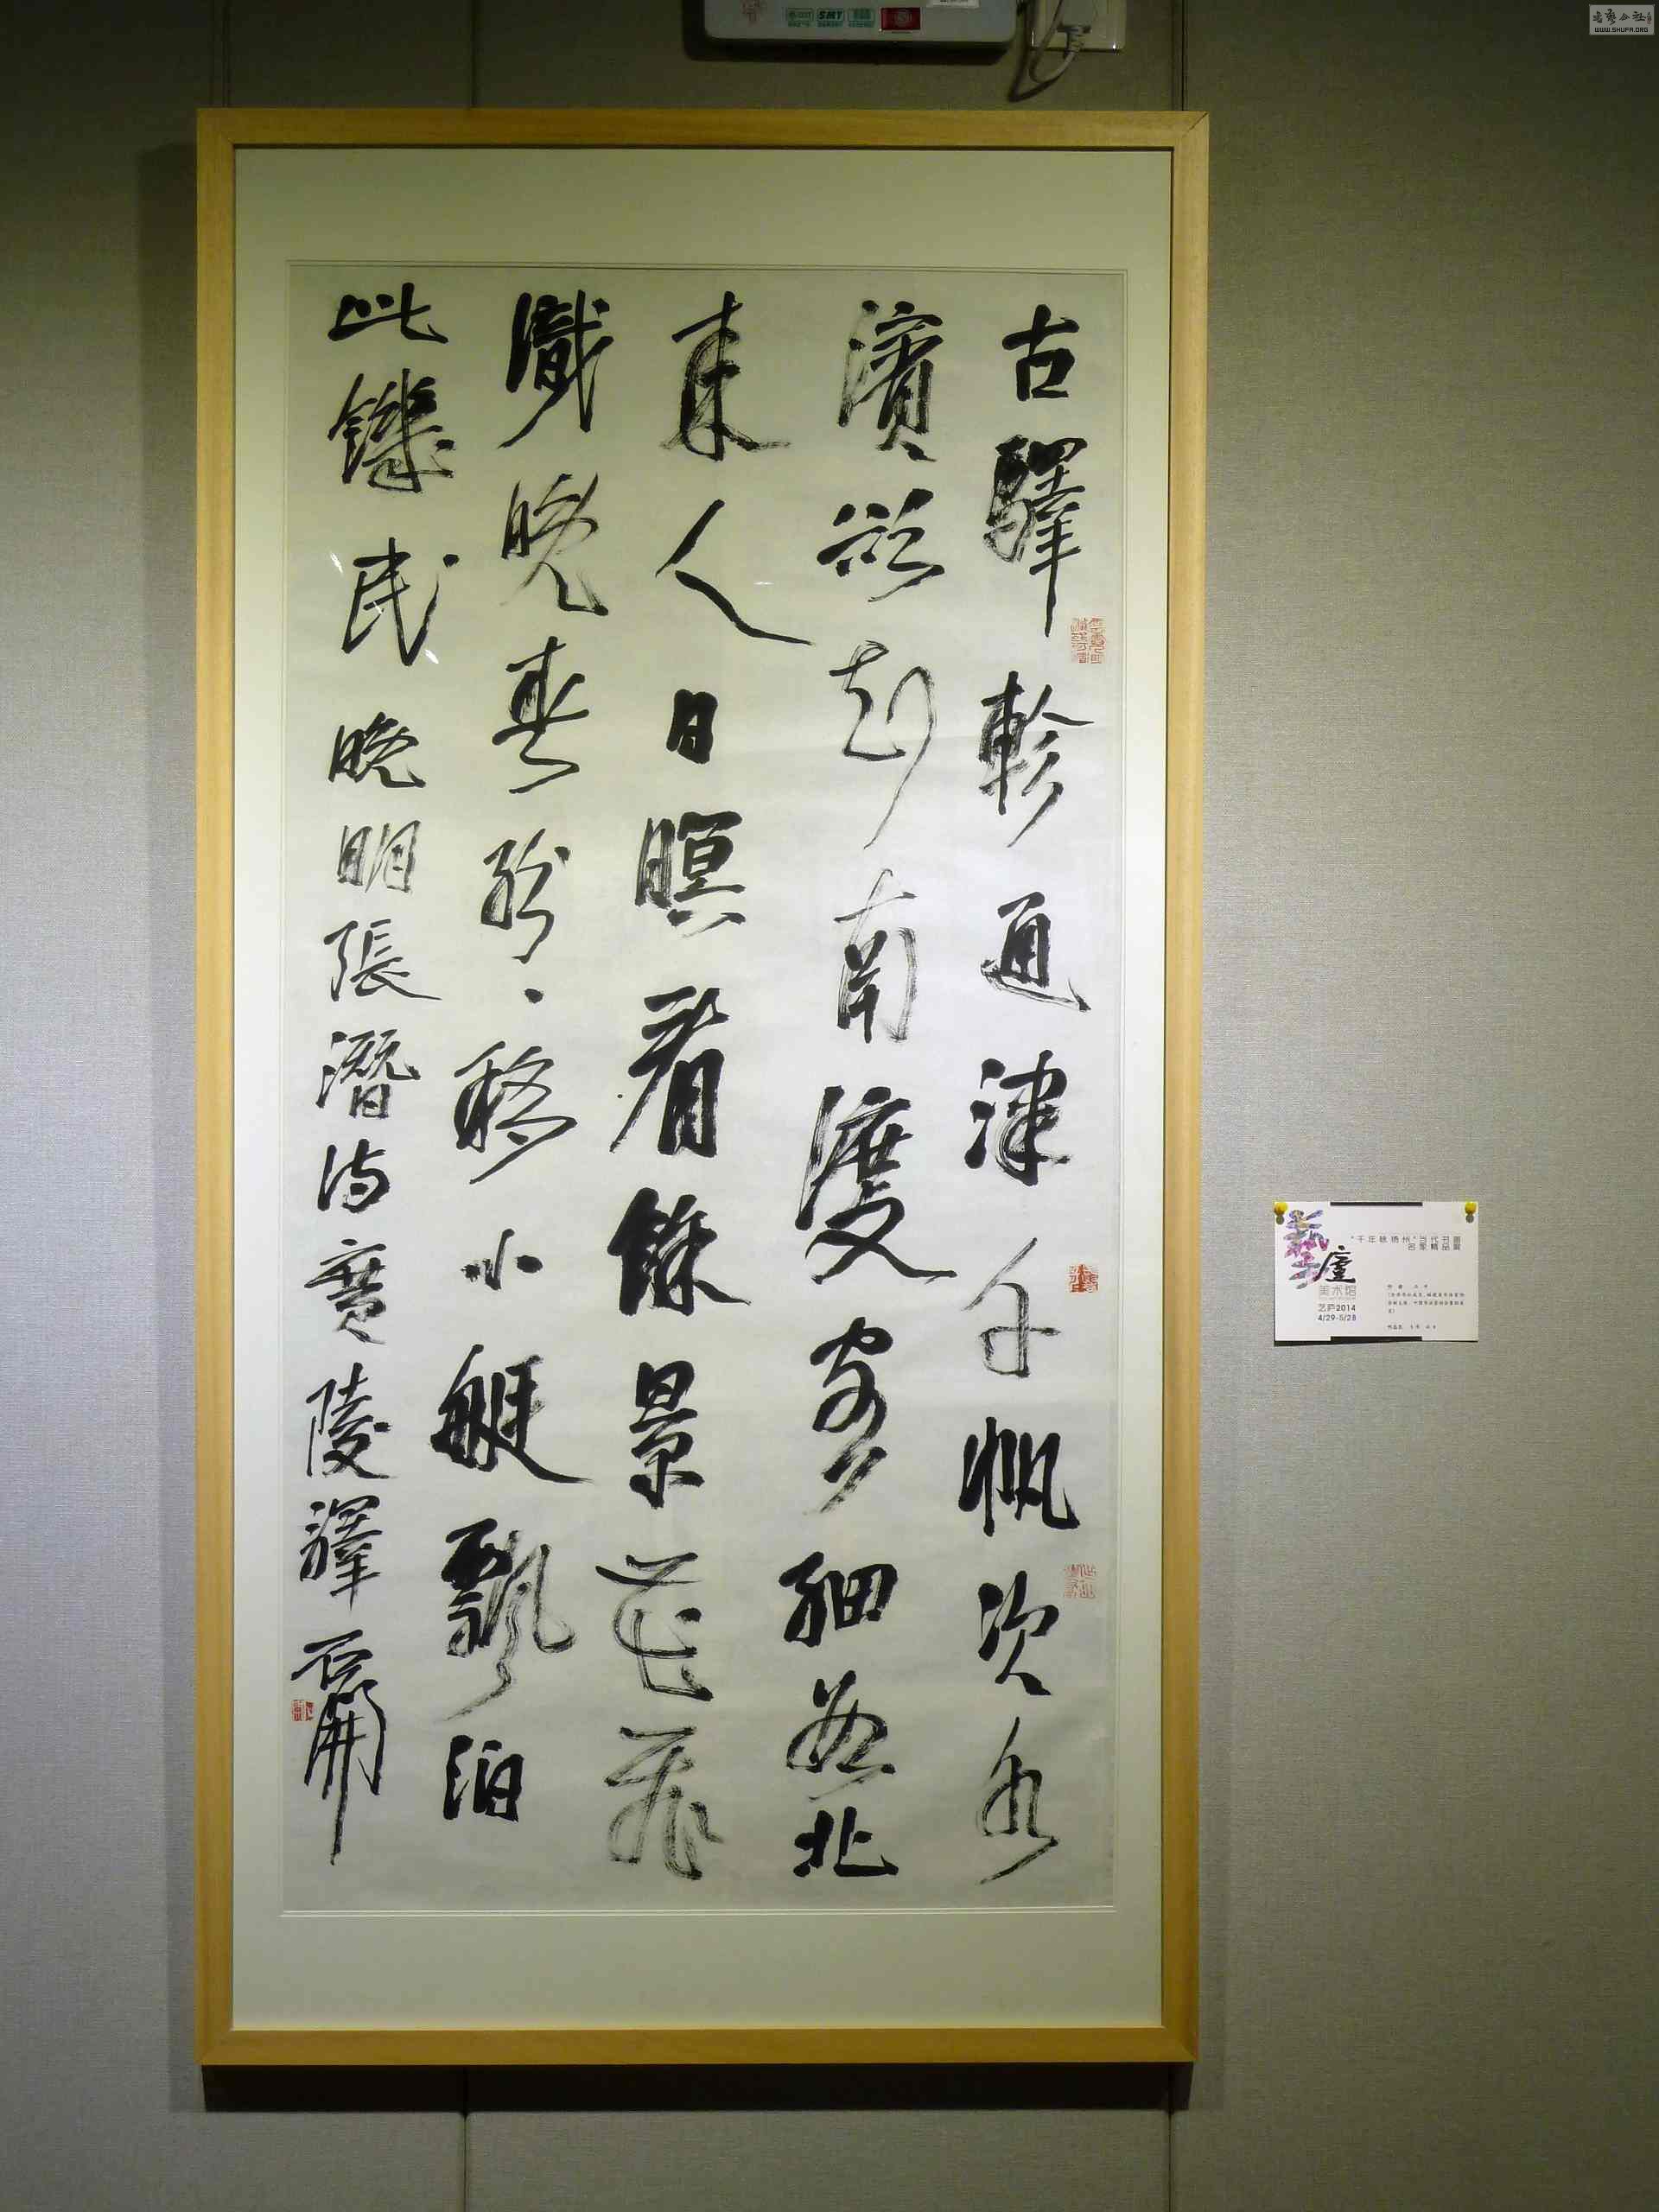 古驛軫通津千帆次水
濱欲南渡客細北
來人日暝看餘景花飛
識晚春紛〻移小艇飄泊
此饑民 晚明張潛詩廣陵驛 石開
廬
美术馆
艺庐2014
4/29-5/28
扬州"当代书画
名家精品展
WWW.SHUFA.ORG